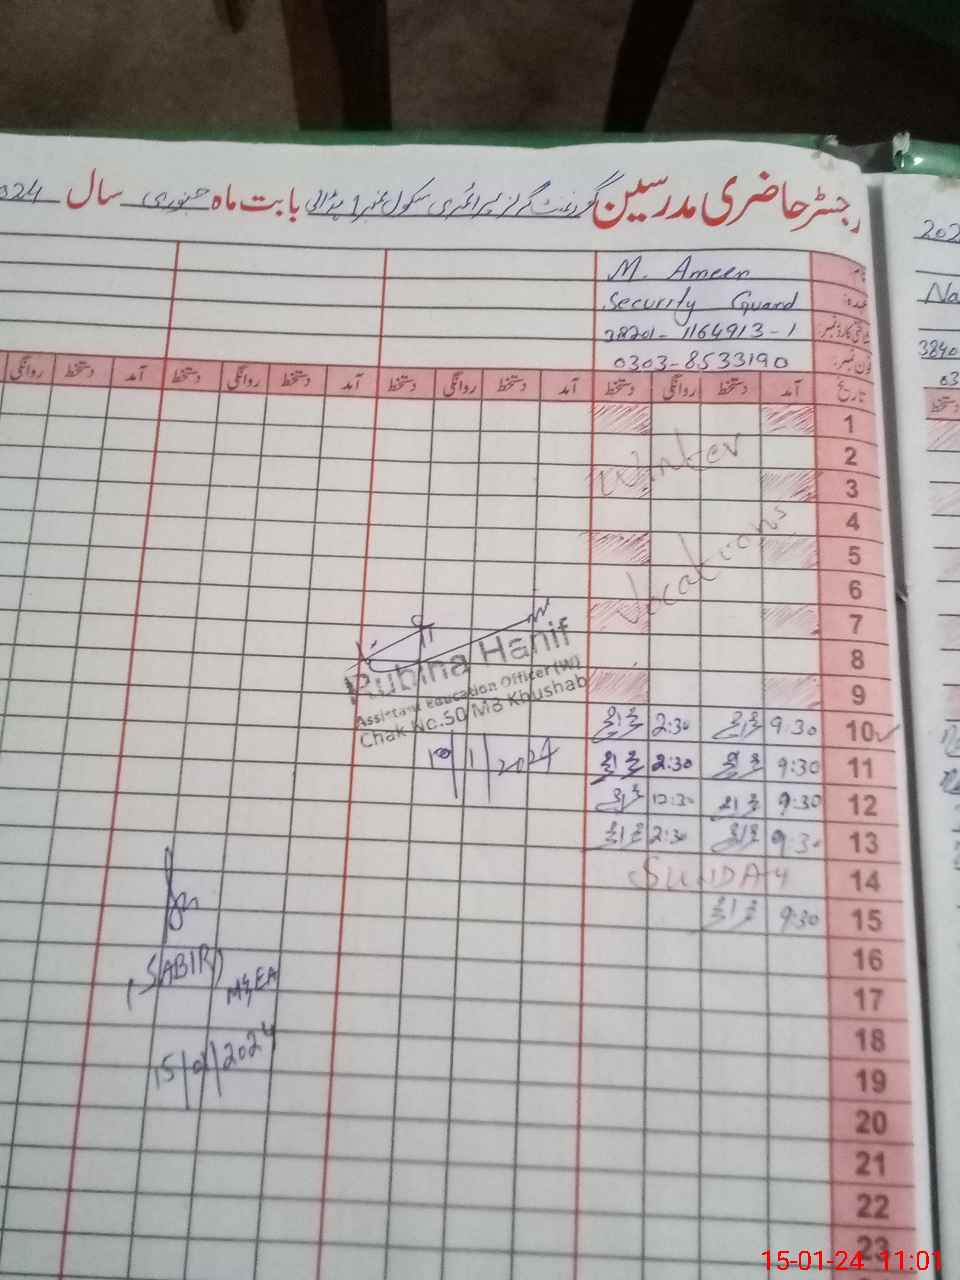 رجسٹر حاضری مدرسین گورنمنٹ گرلز پرائمری سکول نمبر 1 بابت ماہ جنوری سال 2024
M. Ameer
Security Guard
عہدہ
38201-1164913-1
شناختی کارڈ نمبر
0303-8533190
فون نمبر
تاریخ آمد دستخط روانگی دستخط آمد دستخط روانگی دستخط آمد دستخط روانگی دستخط آمد دستخط روانگی
1
2 Winter
3
4
5 Vacations
6
7
8
9
10 9:30 2:30
11 9:30 2:30
12 9:30 12:30
13 9:30 2:30
14 SUNDAY
15 9:30
16
17
18
19
20
21
22
23
Rubina Hanif
Assistant Education Officer (W)
Chak No.50/MB Khushab
10/1/2024
(SABIR)
MEA
15/01/2024
202
Na
3840
03
دستخط
15-01-24 11:01